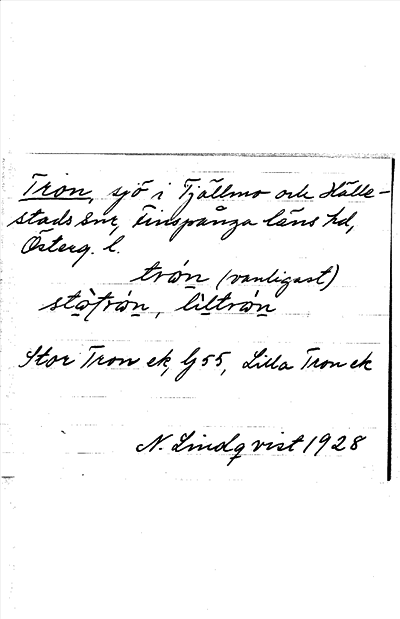 Tron, sjö i Tjällmo och Hälle-
stads snr, Finspånga läns hd,
Österg. l.
trón (vanligast)
stòtrón, lìltrón
Stor Tron ek, G 55, Lilla Tron ek
N. Lindqvist 1928